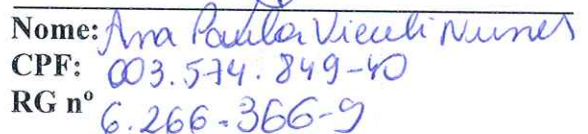 Nome: Ana Paula Vieceli Nunes
CPF: 003.574.849-40
RG nº 6.266.366-9